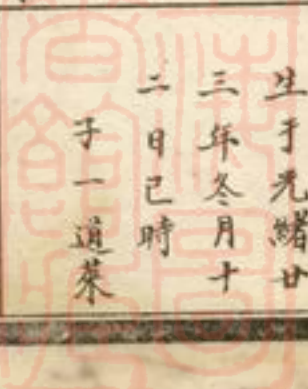 生于光緒廿
三年冬月十
二日巳時
子一道萊